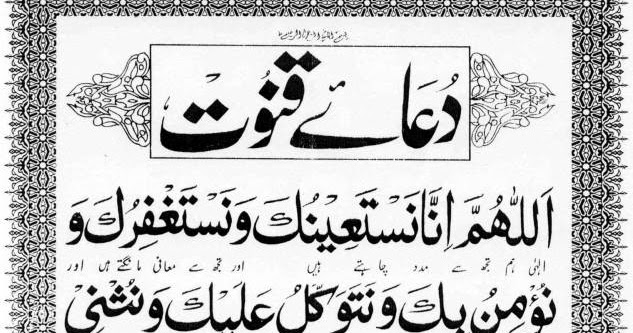 دُعَائے قنُوت
اَللّٰهُمَّ اِنَّا نَسْتَعِيْنُكَ وَنَسْتَغْفِرُكَ وَ
الٰہی ہم تجھ سے مدد چاہتے ہیں اور تجھ سے معافی مانگتے ہیں اور
نُؤْمِنُ بِكَ وَنَتَوَكَّلُ عَلَيْكَ وَنُثْنِيْ